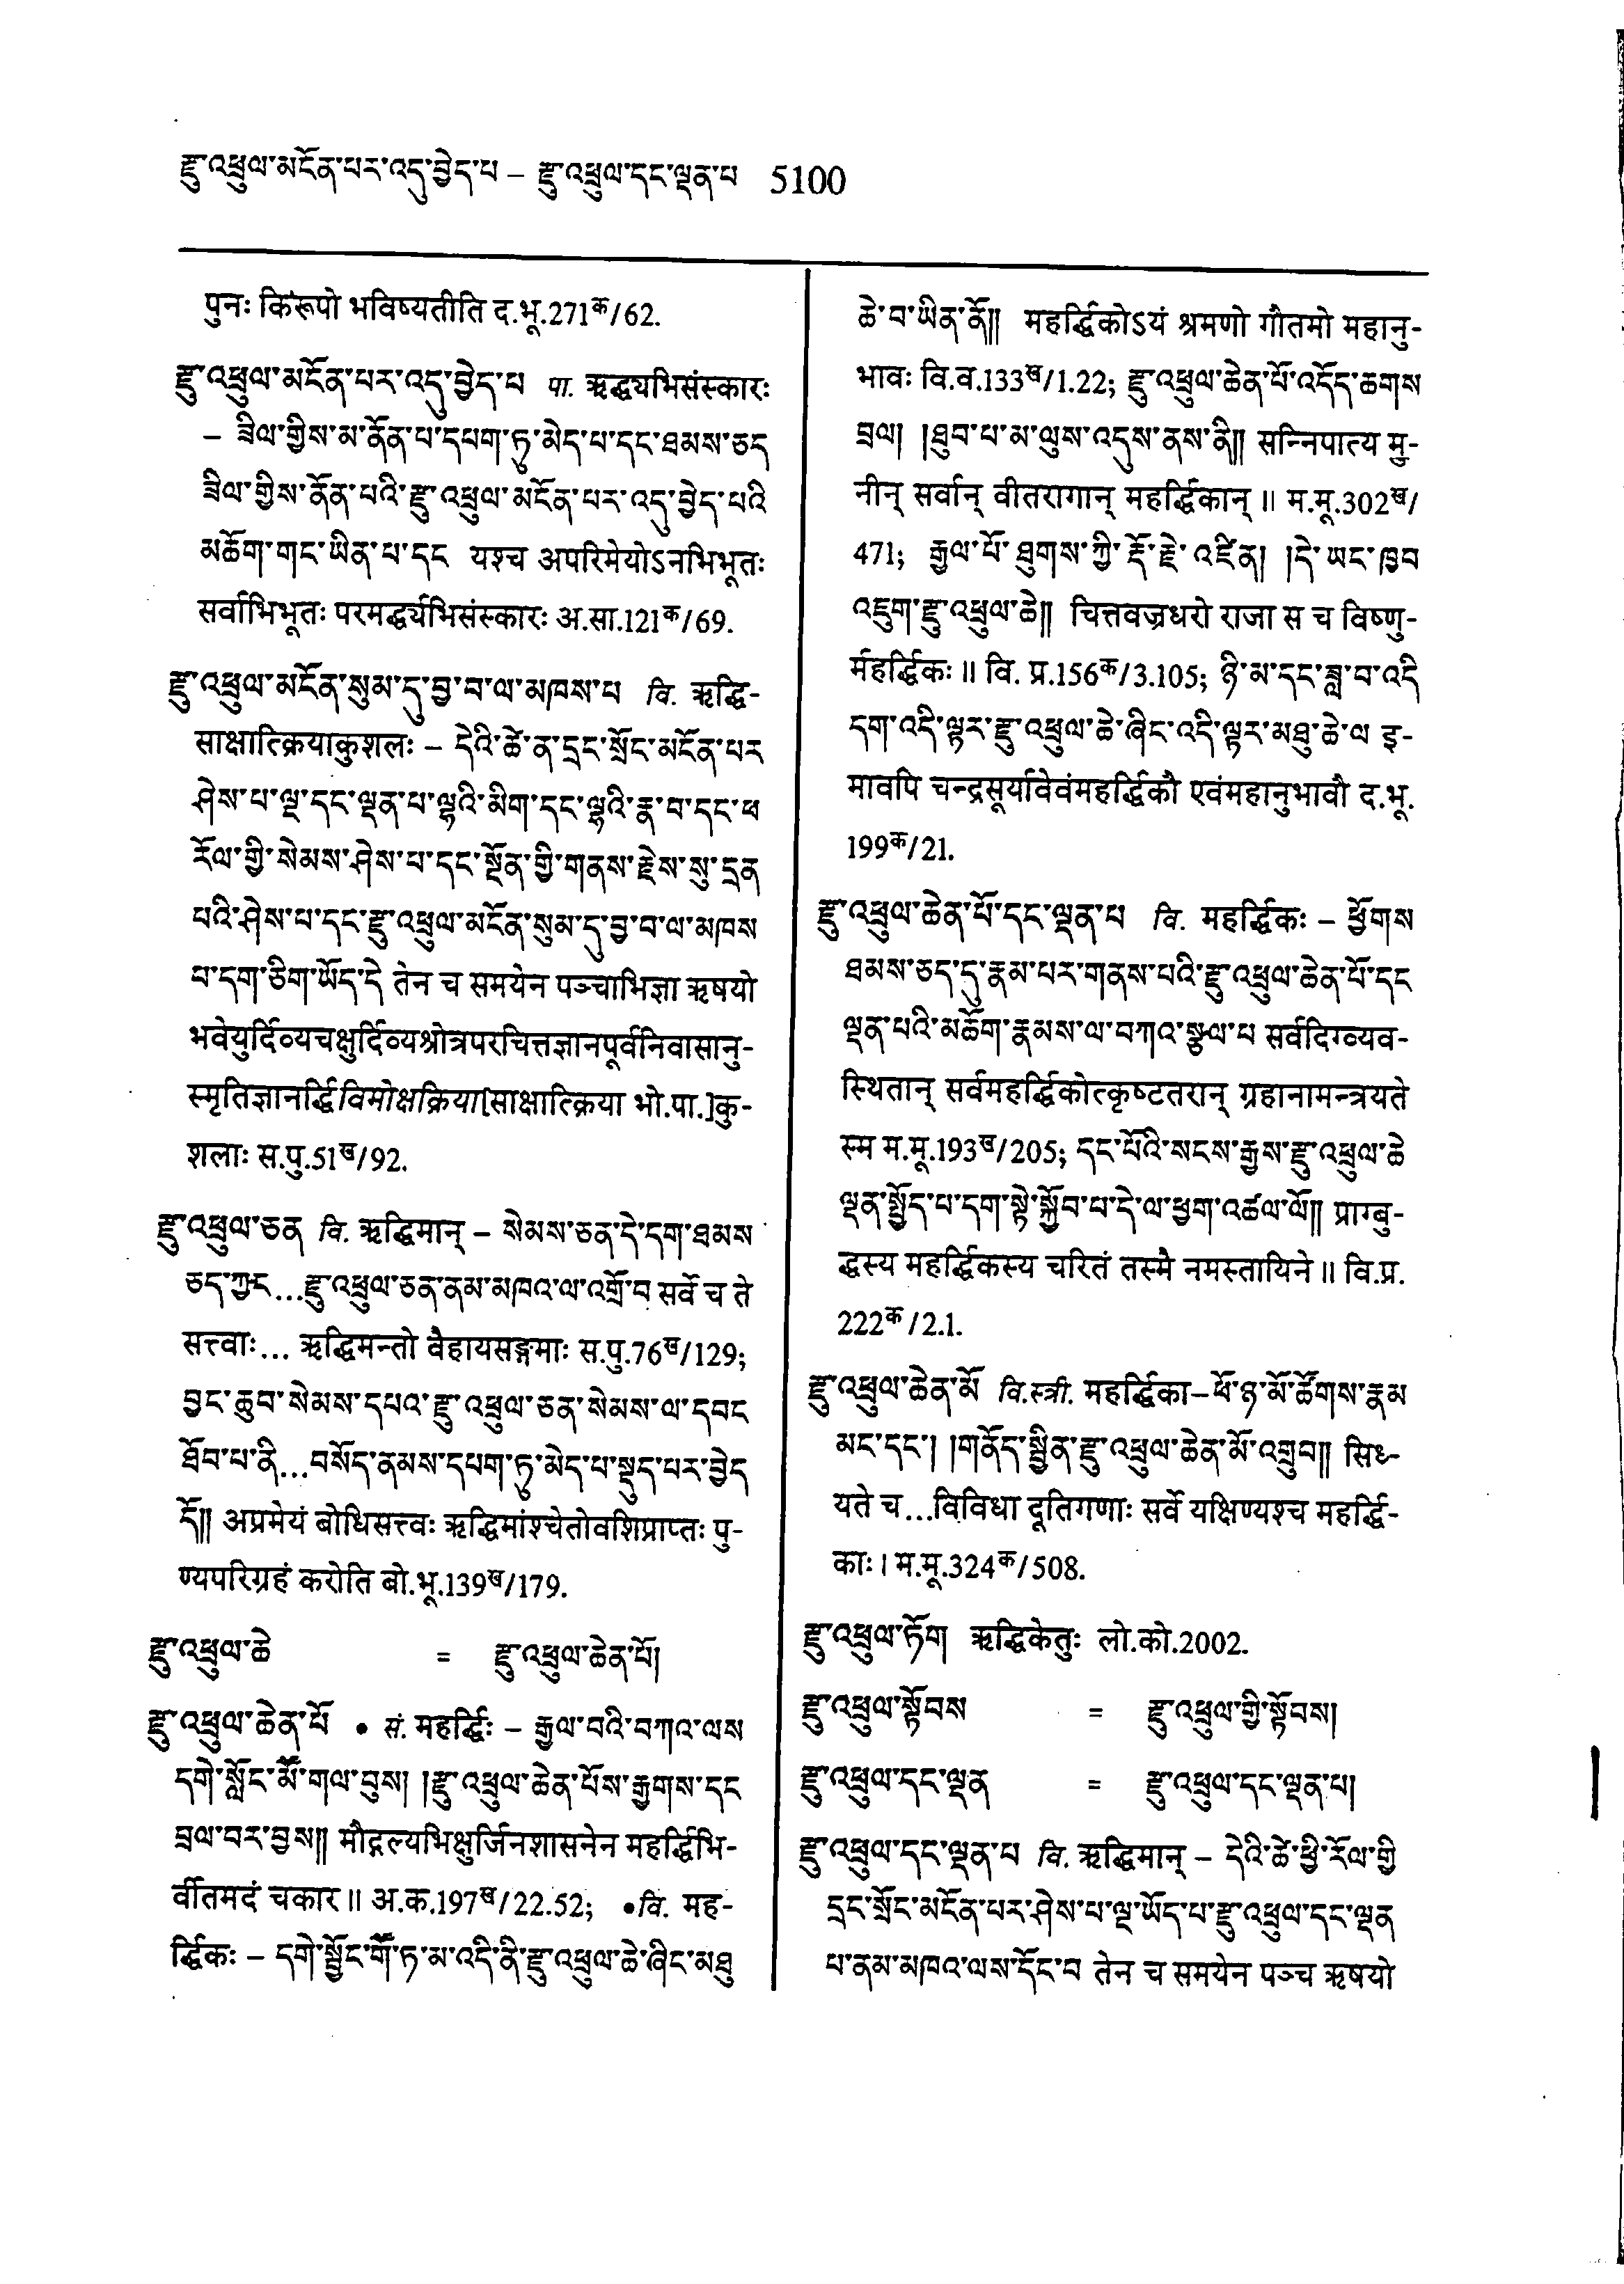 རྫུ་འཕྲུལ་མངོན་པར་འདུ་བྱེད་པ – རྫུ་འཕྲུལ་དང་ལྡན་པ 5100
पुनः किंरूपो भविष्यतीति द.भू.271क/62.
རྫུ་འཕྲུལ་མངོན་པར་འདུ་བྱེད་པ पा. ऋद्ध्यभिसंस्कारः
– ཟིལ་གྱིས་མ་ནོན་པ་དཔག་ཏུ་མེད་པ་དང་ཐམས་ཅད
ཟིལ་གྱིས་ནོན་པའི་རྫུ་འཕྲུལ་མངོན་པར་འདུ་བྱེད་པའི
མཆོག་གང་ཡིན་པ་དང यश्च अपरिमेयोऽनभिभूतः
सर्वाभिभूतः परमर्द्ध्यभिसंस्कारः अ.सा.121क/69.
རྫུ་འཕྲུལ་མངོན་སུམ་དུ་བྱ་བ་ལ་མཁས་པ वि. ऋद्धि-
साक्षात्क्रियाकुशलः – དེའི་ཚེ་ན་དྲང་སྲོང་མངོན་པར
ཤེས་པ་ལྔ་དང་ལྡན་པ་ལྷའི་མིག་དང་ལྷའི་རྣ་བ་དང་ཕ
རོལ་གྱི་སེམས་ཤེས་པ་དང་སྔོན་གྱི་གནས་རྗེས་སུ་དྲན
པའི་ཤེས་པ་དང་རྫུ་འཕྲུལ་མངོན་སུམ་དུ་བྱ་བ་ལ་མཁས
པ་དག་ཅིག་ཡོད་དེ तेन च समयेन पञ्चाभिज्ञा ऋषयो
भवेयुर्दिव्यचक्षुर्दिव्यश्रोत्रपरचित्तज्ञानपूर्वनिवासानु-
स्मृतिज्ञानर्द्धिविमोक्षक्रिया[साक्षात्क्रिया भो.पा.]कु-
शलाः स.पु.51ख/92.
རྫུ་འཕྲུལ་ཅན वि. ऋद्धिमान् – སེམས་ཅན་དེ་དག་ཐམས
ཅད་ཀྱང...རྫུ་འཕྲུལ་ཅན་ནམ་མཁའ་ལ་འགྲོ་བ सर्वे च ते
सत्त्वाः... ऋद्धिमन्तो वैहायसङ्गमाः स.पु.76ख/129;
བྱང་ཆུབ་སེམས་དཔའ་རྫུ་འཕྲུལ་ཅན་སེམས་ལ་དབང
ཐོབ་པ་ནི...བསོད་ནམས་དཔག་ཏུ་མེད་པ་སྡུད་པར་བྱེད
དོ།། अप्रमेयं बोधिसत्त्वः ऋद्धिमांश्चेतोवशिप्राप्तः पु-
ण्यपरिग्रहं करोति बो.भू.139ख/179.
རྫུ་འཕྲུལ་ཆེ = རྫུ་འཕྲུལ་ཆེན་པོ།
རྫུ་འཕྲུལ་ཆེན་པོ • सं. महर्द्धिः – རྒྱལ་བའི་བཀའ་ལས
དགེ་སློང་མཽ་གལ་བུས། །རྫུ་འཕྲུལ་ཆེན་པོས་རྒྱགས་དང
བྲལ་བར་བྱས།། मौद्गल्यभिक्षुर्जिनशासनेन महर्द्धिभि-
र्वीतमदं चकार ॥ अ.क.197ख/22.52; •वि. मह-
र्द्धिकः – དགེ་སྦྱོང་གཽ་ཏ་མ་འདི་ནི་རྫུ་འཕྲུལ་ཆེ་ཞིང་མཐུ
ཆེ་བ་ཡིན་ནོ།། महर्द्धिकोऽयं श्रमणो गौतमो महानु-
भावः वि.व.133ख/1.22; རྫུ་འཕྲུལ་ཆེན་པོ་འདོད་ཆགས
བྲལ། །ཐུབ་པ་མ་ལུས་འདུས་ནས་ནི།། सन्निपात्य मु-
नीन् सर्वान् वीतरागान् महर्द्धिकान् ॥ म.मू.302ख/
471; རྒྱལ་པོ་ཐུགས་ཀྱི་རྡོ་རྗེ་འཛིན། །དེ་ཡང་ཁྱབ
འཇུག་རྫུ་འཕྲུལ་ཆེ།། चित्तवज्रधरो राजा स च विष्णु-
र्महर्द्धिकः ॥ वि. प्र.156क/3.105; ཉི་མ་དང་ཟླ་བ་འདི
དག་འདི་ལྟར་རྫུ་འཕྲུལ་ཆེ་ཞིང་འདི་ལྟར་མཐུ་ཆེ་ལ इ-
मावपि चन्द्रसूर्यावेवंमहर्द्धिकौ एवंमहानुभावौ द.भू.
199क/21.
རྫུ་འཕྲུལ་ཆེན་པོ་དང་ལྡན་པ वि. महर्द्धिकः – ཕྱོགས
ཐམས་ཅད་དུ་རྣམ་པར་གནས་པའི་རྫུ་འཕྲུལ་ཆེན་པོ་དང
ལྡན་པའི་མཆོག་རྣམས་ལ་བཀའ་སྩལ་པ सर्वदिग्व्यव-
स्थितान् सर्वमहर्द्धिकोत्कृष्टतरान् ग्रहानामन्त्रयते
स्म म.मू.193ख/205; དང་པོའི་སངས་རྒྱས་རྫུ་འཕྲུལ་ཆེ
ལྡན་སྤྱོད་པ་དག་སྟེ་སྐྱོབ་པ་དེ་ལ་ཕྱག་འཚལ་ལོ།། प्राग्बु-
द्धस्य महर्द्धिकस्य चरितं तस्मै नमस्तायिने ॥ वि.प्र.
222क/2.1.
རྫུ་འཕྲུལ་ཆེན་མོ वि.स्त्री. महर्द्धिका–ཕོ་ཉ་མོ་ཚོགས་རྣམ
མང་དང་། །གནོད་སྦྱིན་རྫུ་འཕྲུལ་ཆེན་མོ་འགྲུབ།། सिध्-
यते च...विविधा दूतिगणाः सर्वे यक्षिण्यश्च महर्द्धि-
काः । म.मू.324क/508.
རྫུ་འཕྲུལ་ཏོག ऋद्धिकेतुः लो.को.2002.
རྫུ་འཕྲུལ་སྟོབས = རྫུ་འཕྲུལ་གྱི་སྟོབས།
རྫུ་འཕྲུལ་དང་ལྡན = རྫུ་འཕྲུལ་དང་ལྡན་པ།
རྫུ་འཕྲུལ་དང་ལྡན་པ वि. ऋद्धिमान् – དེའི་ཚེ་ཕྱི་རོལ་གྱི
དྲང་སྲོང་མངོན་པར་ཤེས་པ་ལྔ་ཡོད་པ་རྫུ་འཕྲུལ་དང་ལྡན
པ་ནམ་མཁའ་ལས་དོང་བ तेन च समयेन पञ्च ऋषयो